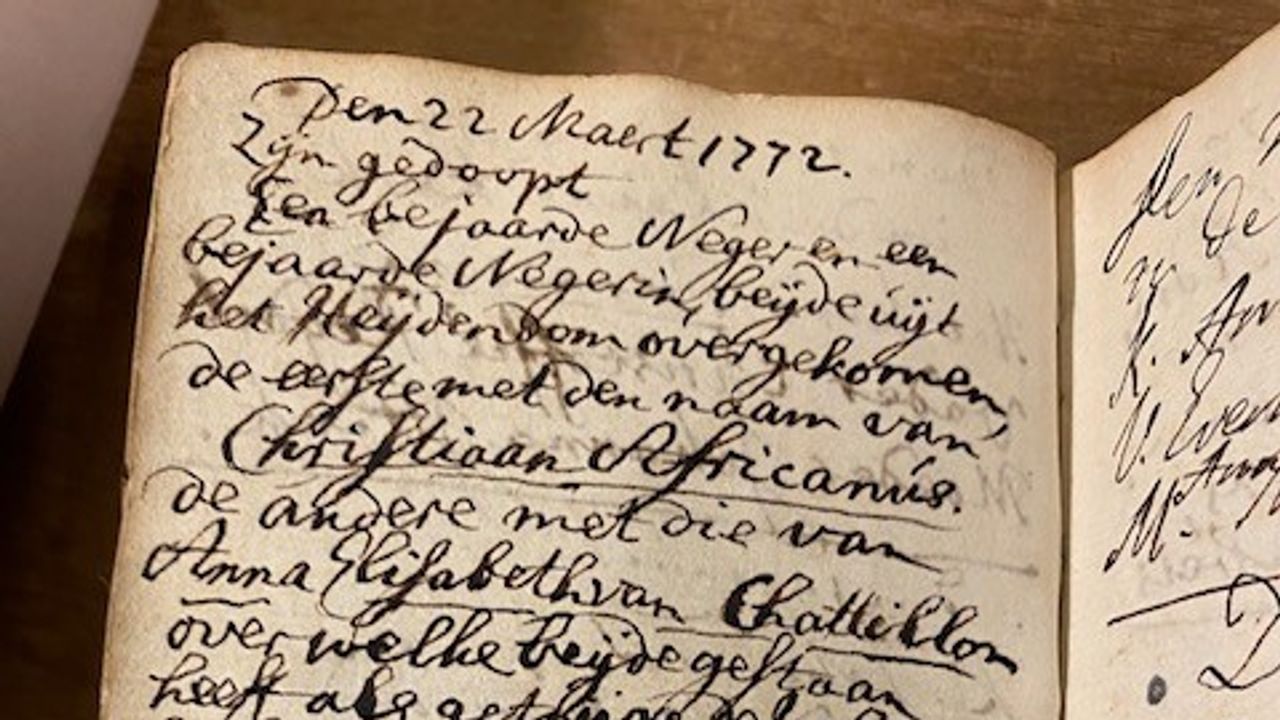 Den 22 Maert 1772.
Zijn gedoopt
Een bejaarde Neger en een
bejaarde Negerin, beÿde uÿt
het Heÿdendom overgekomen,
de eerste met den naam van
Christiaan Africanús.
de andere met die van
Anna Elisabeth van Chattillon
over welke beÿde gestaan
heeft als getúÿge
Den
de
K. An
V.
M.